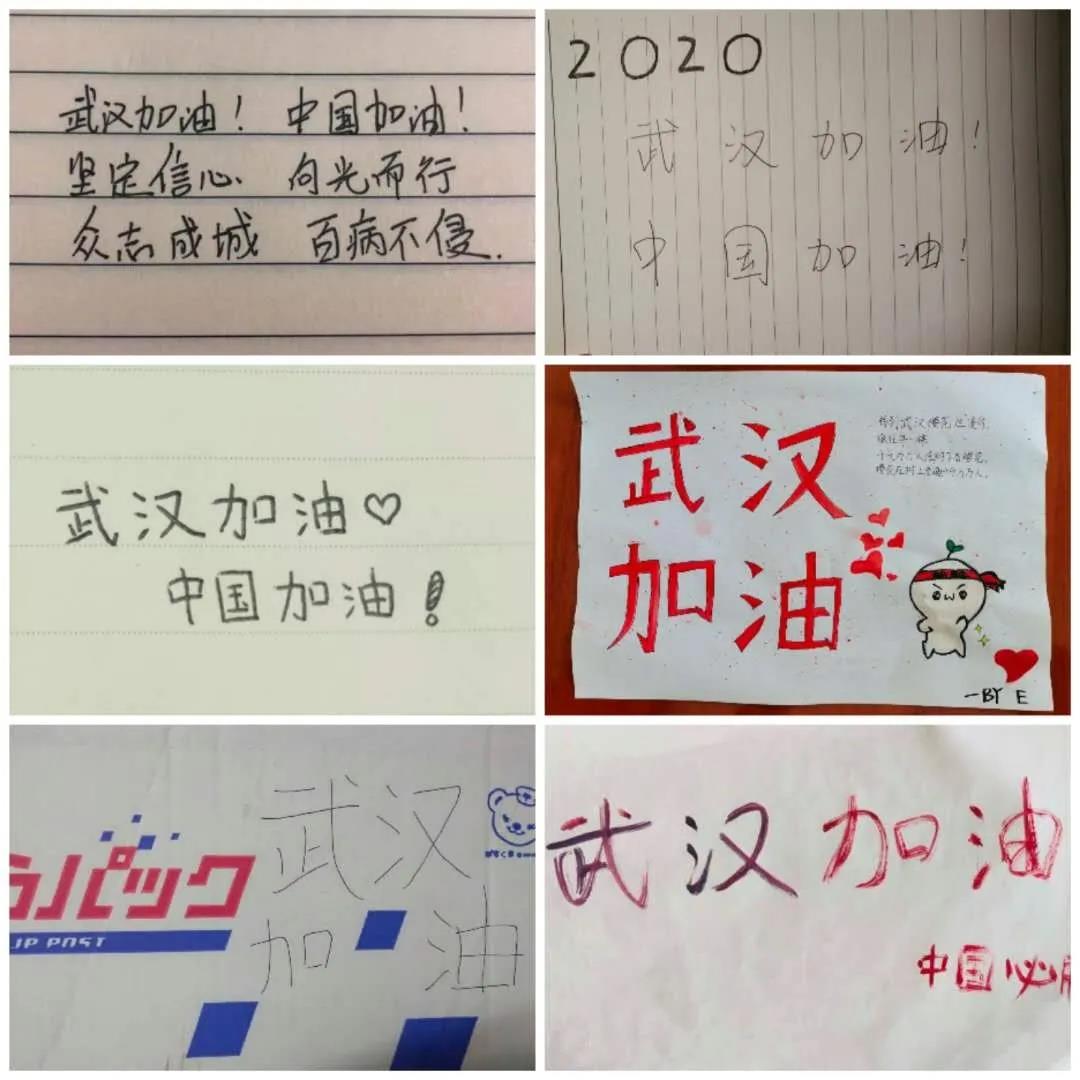 武汉加油！ 中国加油！
坚定信心 向光而行
众志成城 百病不侵.
2020
武汉加油！
中国加油！
武汉加油♡
中国加油！
武汉
加油
千万万人
—BY E
武汉
加油
パック
JP POST
武汉加油
中国必